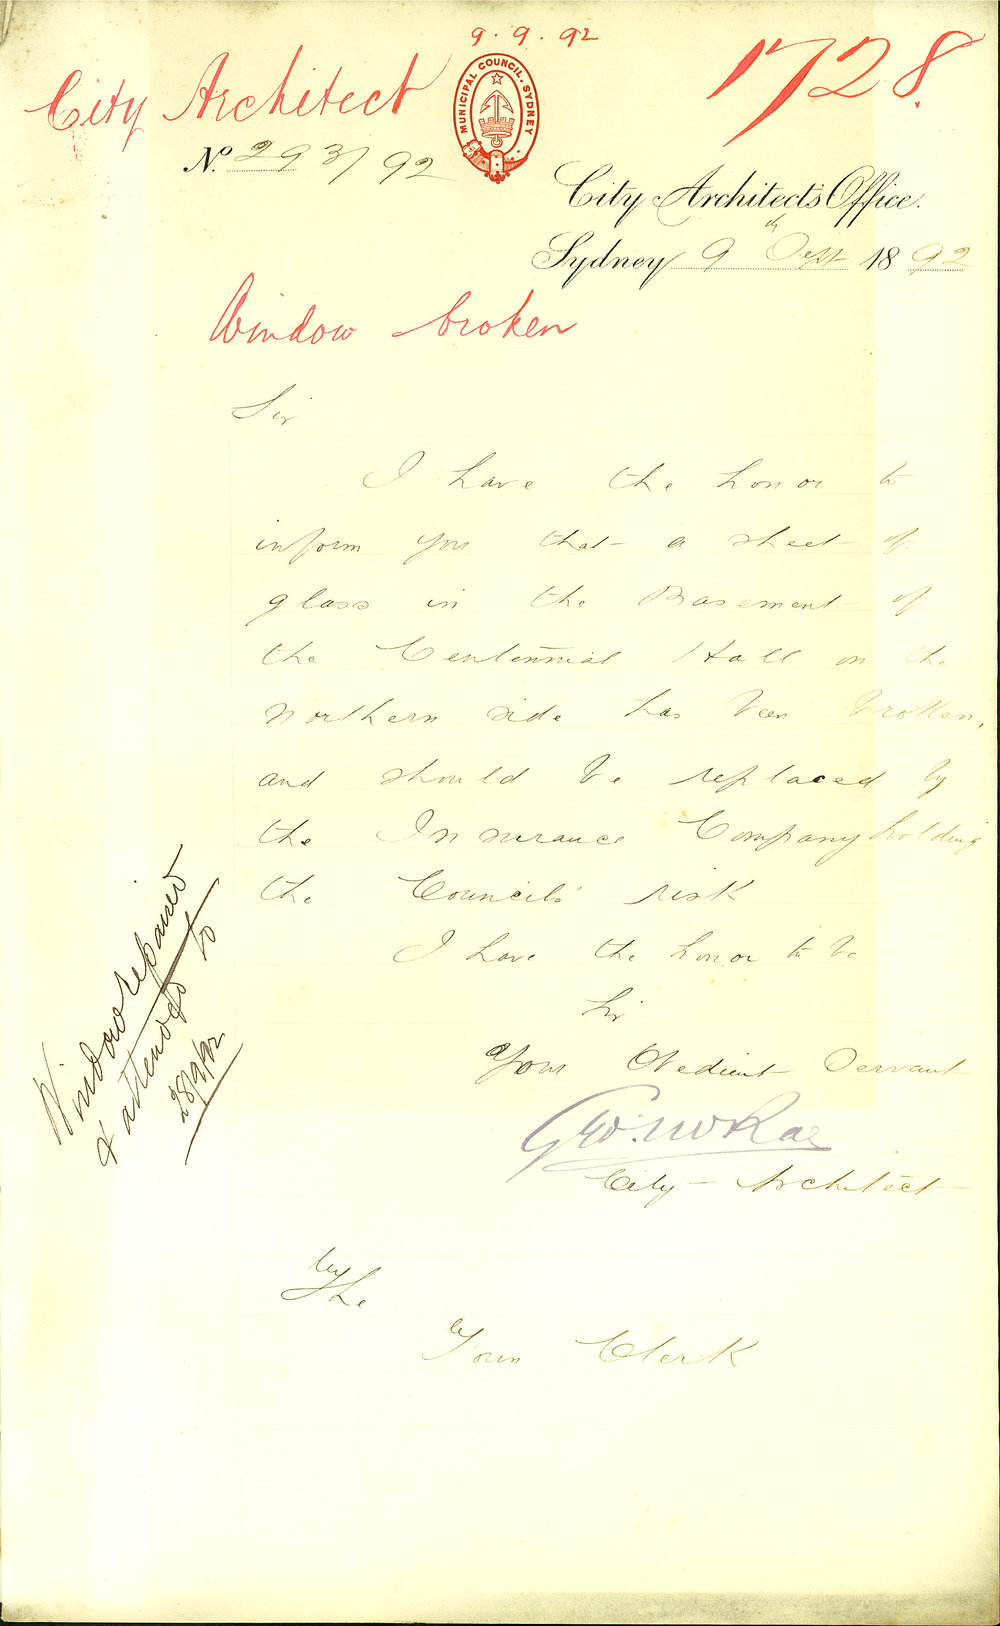 9.9.92
City Architect
1728.
MUNICIPAL COUNCIL. SYDNEY
No. 293/92
City Architect's Office.
Sydney 9th Sept 1892
Window broken
Sir
I have the honor to
inform you that a sheet of
glass in the Basement of
the Centennial Hall on the
northern side has been broken,
and should be replaced by
the Insurance Company holding
the Council's risk
I have the honor to be
Sir
Your Obedient Servant
Geo. McRae
City Architect
The
Town Clerk
Window repaired
& attended to
28/9/92